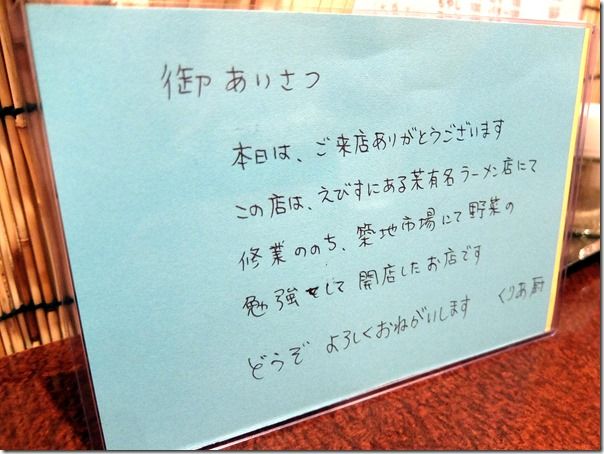 御あいさつ
本日は、ご来店ありがとうございます
この店は、えびすにある某有名ラーメン店にて
修業ののち、築地市場にて野菜の
勉強をして開店したお店です
どうぞ よろしくおねがいします くりあ厨